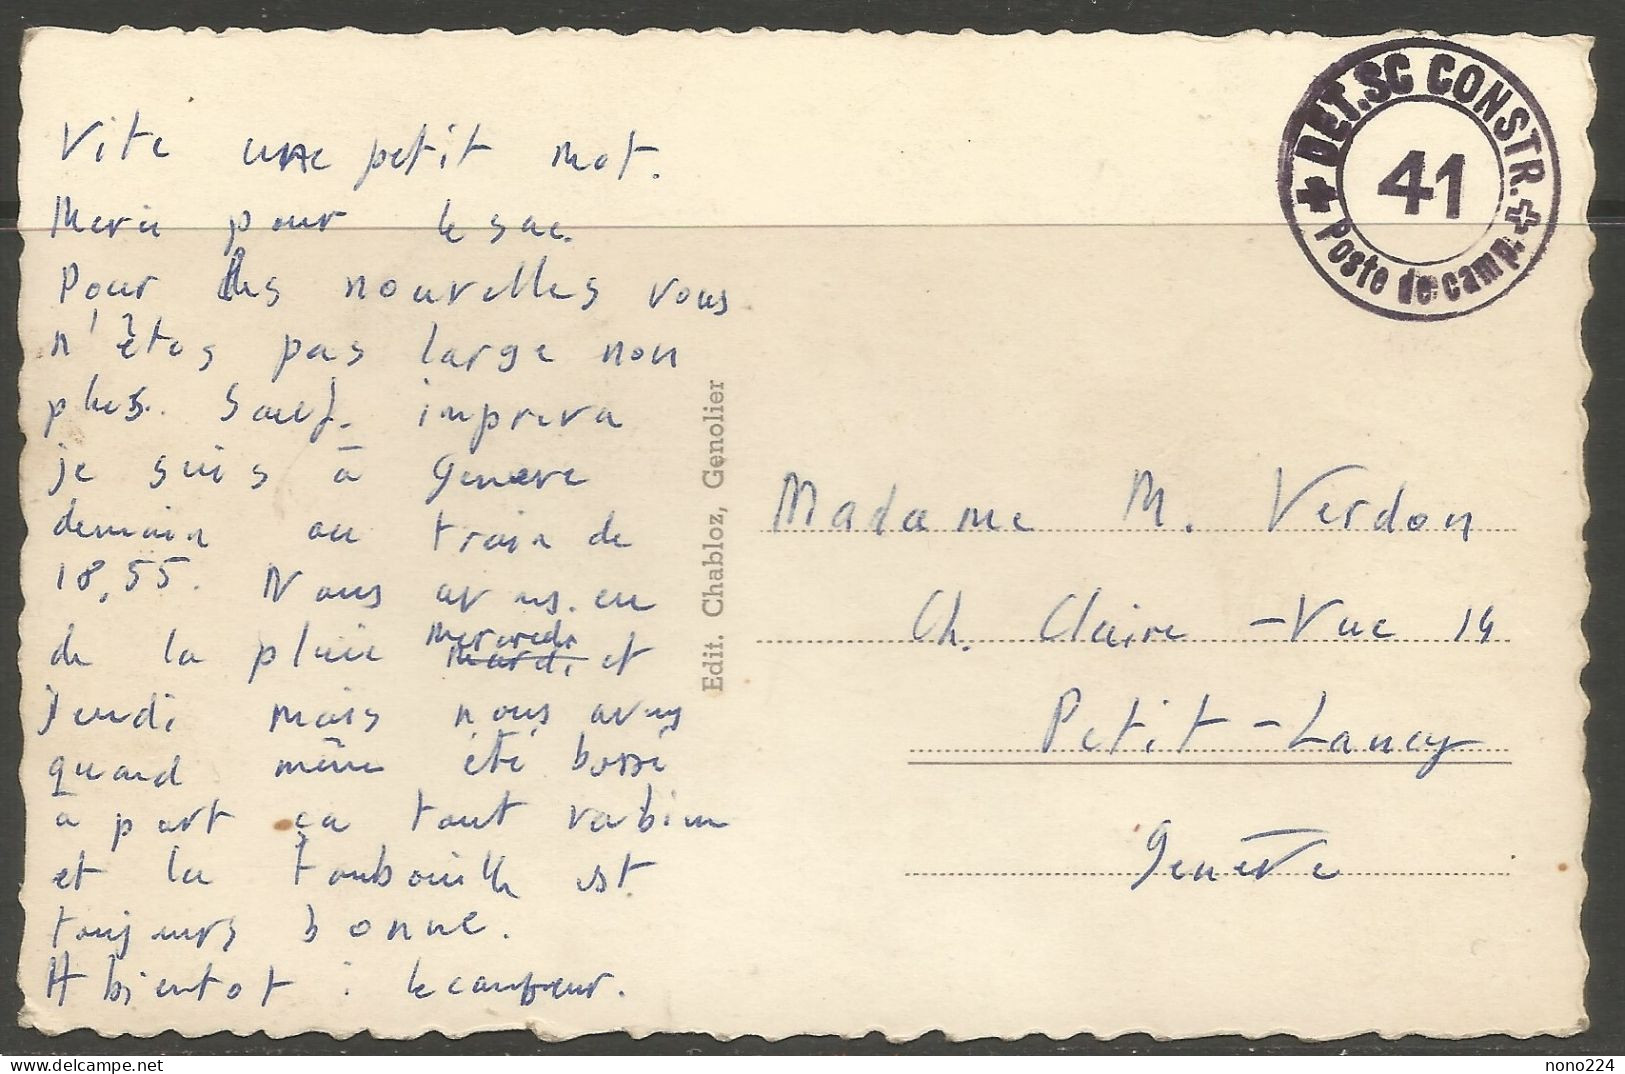 Vite une petit mot.
Merci pour le sac.
Pour des nouvelles vous
n'êtes pas large non
plus. Sauf imprévu
je suis à Genève
demain au train de
18,55. Nous avons eu
de la pluie Mercredi mardi et
Jeudi mais nous avons
quand même été bossé
à part ça tout va bien
et la tambouille est
toujours bonne.
A bientot :
Edit. Chabloz, Genolier
DET.SC CONSTR.
41
Poste de camp.
Madame M. Verdon
Ch. Claire-Vue 14
Petit-Lancy
Genève
delcampe.net
nono224